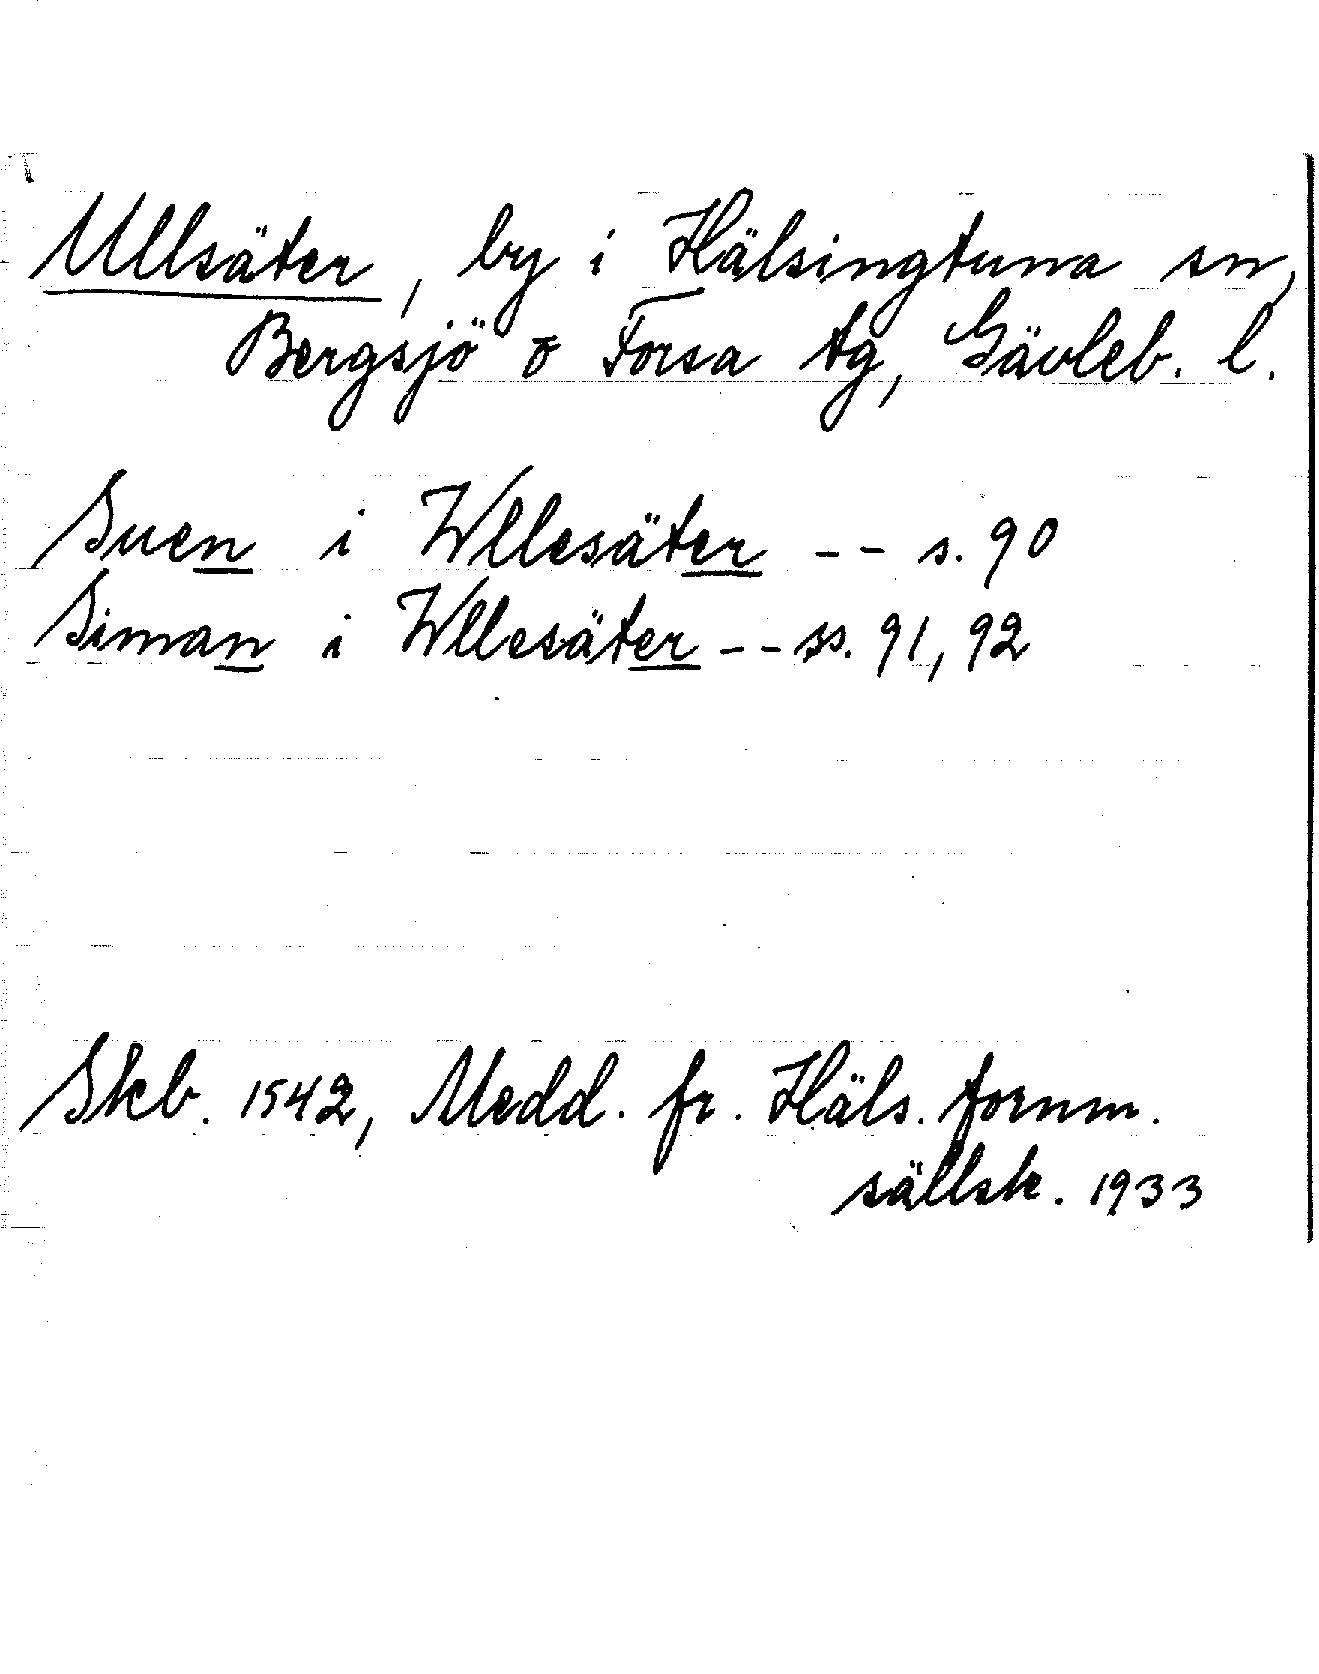 Ullsäter, by i Hälsingtuna sn,
Bergsjö o Forsa tg, Gävleb. l.
Suen i Wllesäter -- s. 90
Siman i Wllesäter -- ss. 91, 92
Skb. 1542, Medd. fr. Häls. fornm.
sällsk. 1933